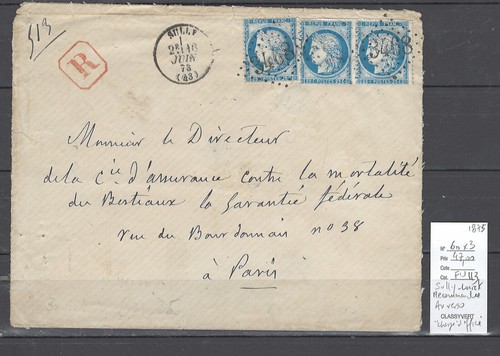 513
R
SULLY
2E 16
JUIN
(43)
REPUB. FRANC.
REPUB. FRANC.
REPUB. FRANC.
POSTES
3498
Monsieur le Directeur
de la Cie d'assurance contre la mortalité
des Bestiaux la Garantie fédérale
rue du Bourdonnais n° 38
à Paris
1875
N° 60 x3
Prix 47,00
Cote
Cat. FU113
Sully Loiret
Au verso
CLASSYVERT
"chargé d'office"